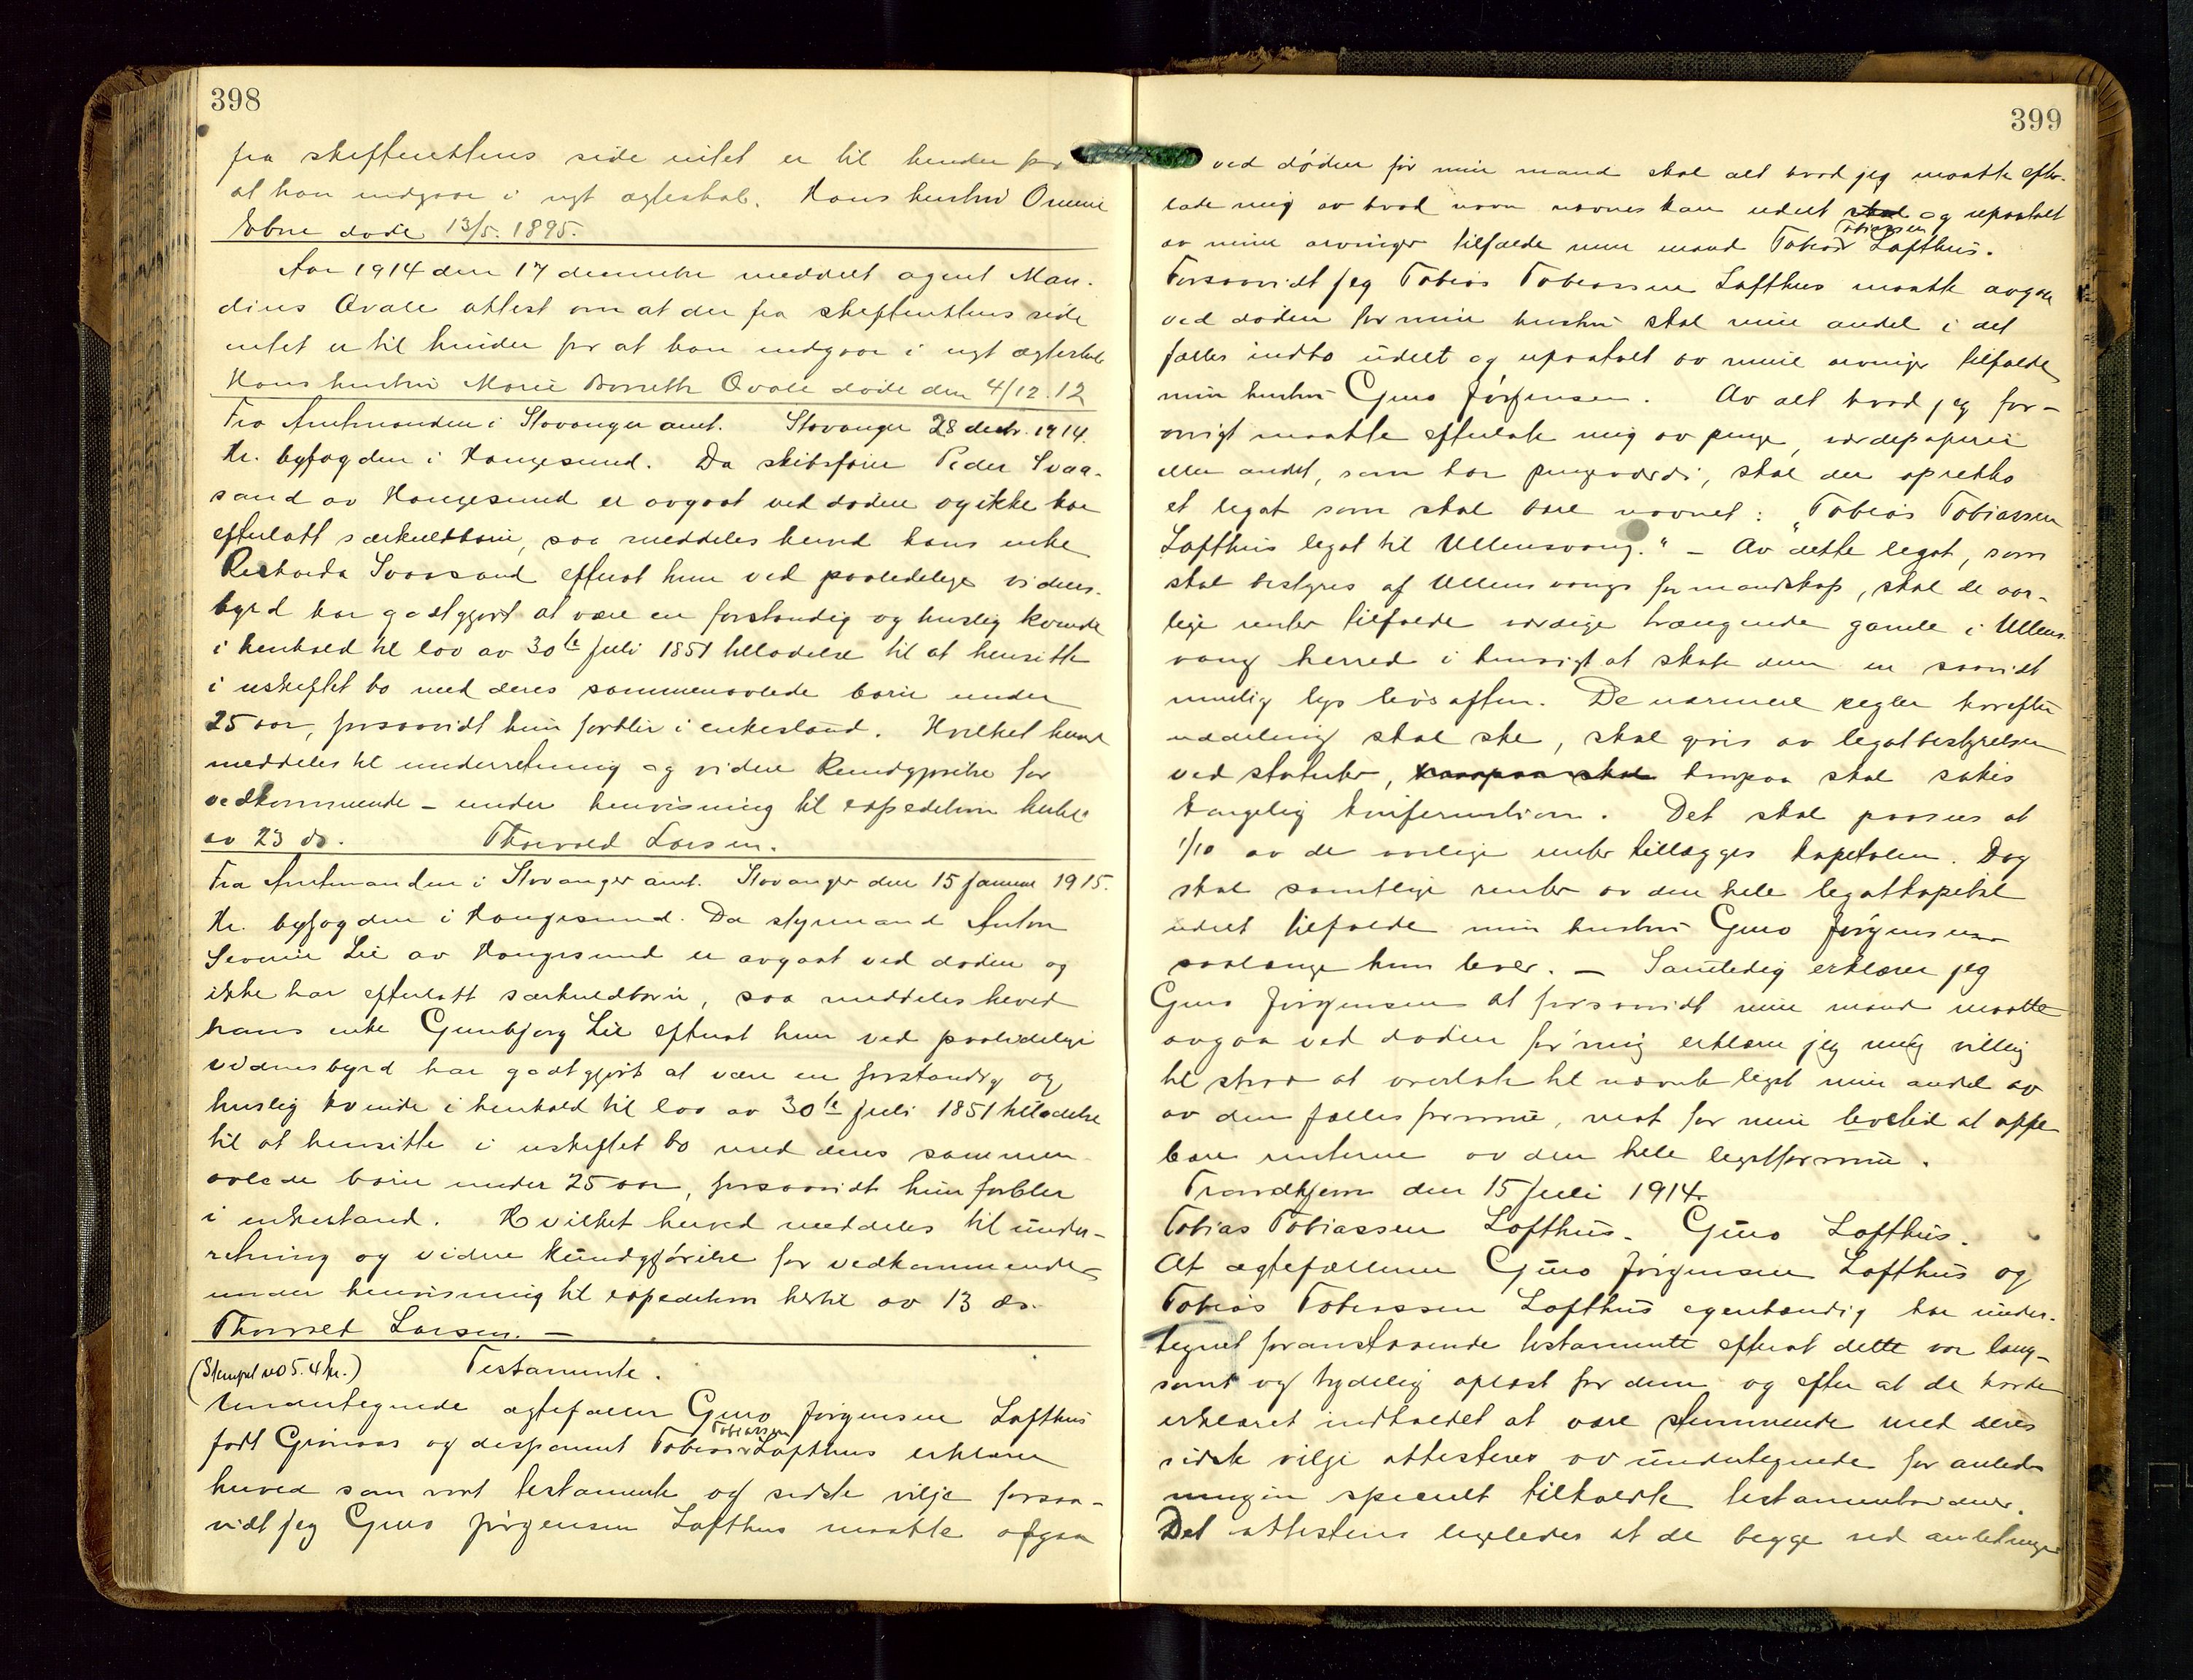 398
fra skifterettens side intet er til hinder for
at han indgaar i nyt ægteskab. Hans hustru
døde 13/5. 1895.
Aar 1914 den 17 december meddelt agent Man-
dius Qvale attest om at der fra skifterettens side
intet er til hinder for at han indgaar i nyt ægteskab
Hans hustru Marie Qvale døde den 4/12.12
Fra Amtmanden i Stavanger amt. Stavanger 28 decbr. 1914.
Hr. byfogden i Haugesund. Da skibsfører Peder Svaa-
sand av Haugesund er avgaat ved døden og ikke har
efterlatt særkuldbørn, saa meddeles herved hans enke
Rikharda Svaasand efterat hun ved paalidelige vidnes-
byrd har godtgjort at være en forstandig og huslig kvinde
i henhold til lov av 30te juli 1851 tilladelse til at hensitte
i uskiftet bo med deres sammenavlede børn under
25 aar, forsaavidt hun forblir i enkestand. Hvilket herved
meddeles til underretning og videre kundgjørelse for
vedkommende – under henvisning til expedition hertil
av 23 ds. Thorvald Larsen.
Fra Amtmanden i Stavanger amt. Stavanger den 15 januar 1915.
Hr. byfogden i Haugesund. Da styrmand Anton
Severin Lie av Haugesund er avgaat ved døden og
ikke har efterlatt særkuldbørn, saa meddeles herved
hans enke Gunbjørg Lie efterat hun ved paalidelige
vidnesbyrd har godtgjort at være en forstandig og
huslig kvinde i henhold til lov av 30te juli 1851 tilladelse
til at hensitte i uskiftet bo med deres sammen
avlede børn under 25 aar, forsaavidt hun forbler
i enkestand. Hvilket herved meddeles til under-
retning og videre kundgjørelse for vedkommende
under henvisning til expedition hertil av 13 ds.
Thorvald Larsen. –
(Stempel no 5. 4 kr.) Testamente.
Undertegnede ægtefæller Guro Jørgensen Lofthus
født Grønaas og dispasent Tobias Tobiassen Lofthus erklærer
herved som vort testamente og sidste vilje forsaa-
vidt jeg Guro Jørgensen Lofthus maatte afgaa
399
ved døden før min mand skal alt hvad jeg maatte efter-
late mig av hvad navn nævnes kan udelt skal og upaatalt
av mine arvinger tilfalde min mand Tobias Tobiassen Lofthus.
Forsaavidt jeg Tobias Tobiassen Lofthus maatte avgaa
ved døden før min hustru skal min andel i det
fælles indbo udelt og upaatalt av mine arvinger tilfalde
min hustru Guro Jørgensen. Av alt hvad jeg for-
øvrigt maatte efterlate mig av penge, værdepapirer
eller andet, som har pengeværdi, skal der oprettes
et legat som skal være navnet: „Tobias Tobiassen
Lofthus legat til Ullensvang." – Av dette legat, som
skal bestyres af Ullensvangs formandskap, skal de aar-
lige renter tilfalde værdige trængende gamle i Ullens-
vang herred i hensigt at skabe dem en saavidt
mulig lys livsaften. De nærmere regler hvorefter
uddeling skal ske, skal gives av legatbestyrelsen
ved statuter, hvorpaa skal hvorpaa skal søkes
kongelig konfirmation. Det skal paasees at
1/10 av de aarlige renter tillægges kapitalen. Dog
skal samtlige renter av den hele legatkapital
udelt tilfalde min hustru Guro Jørgensen
saalænge hun lever. – Samtidig erklærer jeg
Guro Jørgensen at forsaavidt min mand maatte
avgaa ved døden før mig erklærer jeg mig villig
til straks at overlate til nævnte legat min andel av
av den fælles formue, mot for min levetid at oppe
bære renterne av den hele legatformue.
Trondhjem den 15 juli 1914
Tobias Tobiassen Lofthus. Guro Lofthus.
At ægtefællerne Guro Jørgensen Lofthus og
Tobias Tobiassen Lofthus egenhændig har under-
tegnet foranstaaende testamente efterat dette var lang-
samt og tydelig oplæst for dem og efter at de havde
erklæret indholdet at være stemmende med deres
sidste vilje attesteres av undertegnede for anled-
ningen specielt tilkaldte testamentvidner.
Det attesteres ligeledes at de begge ved anledningen